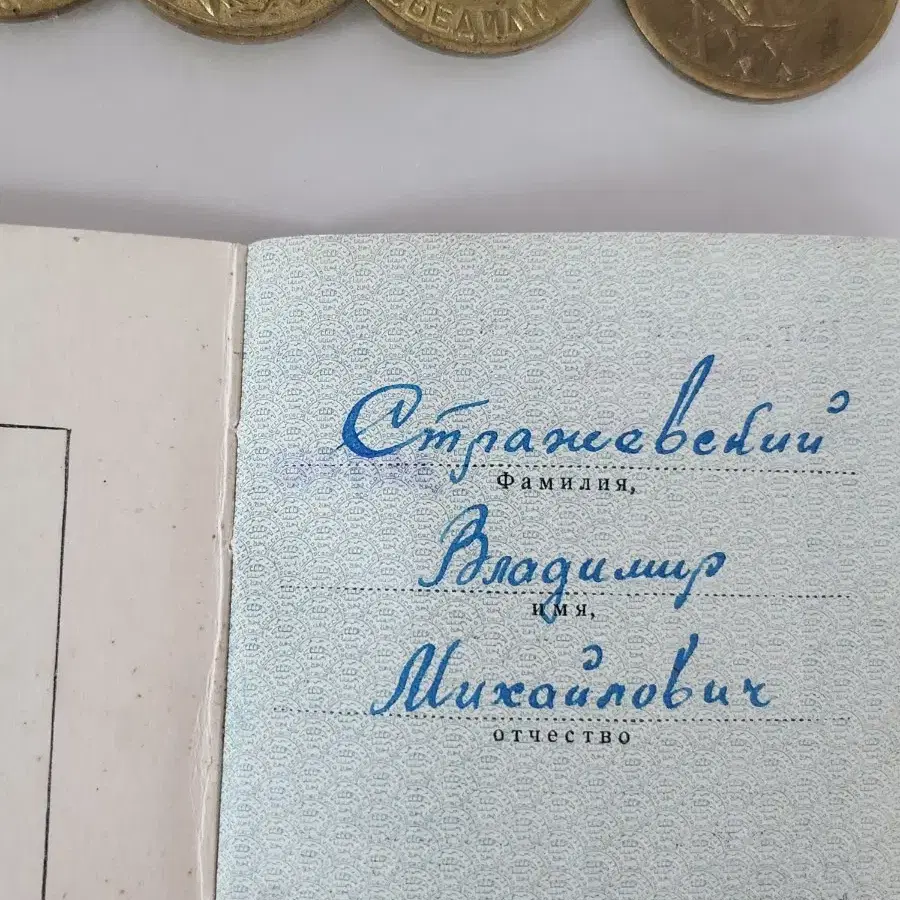 ПОБЕДИЛИ
XX
Стражевский
Фамилия,
Владимир
имя,
Михайлович
отчество